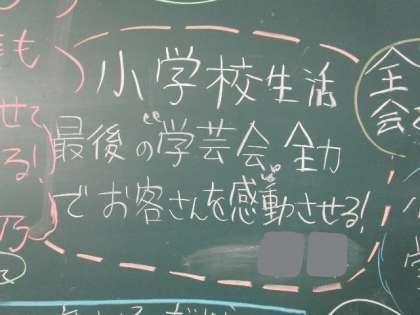 小学校生活
最後の"学芸会"全力
でお客さんを感動させる!
も
せて
る!
乃
全
会